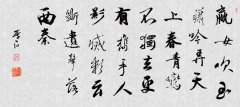 嬴女吹玉
簫吟弄天
上春青鸞
不獨去更
有携手人
影滅彩云
斷遺聲落
西秦